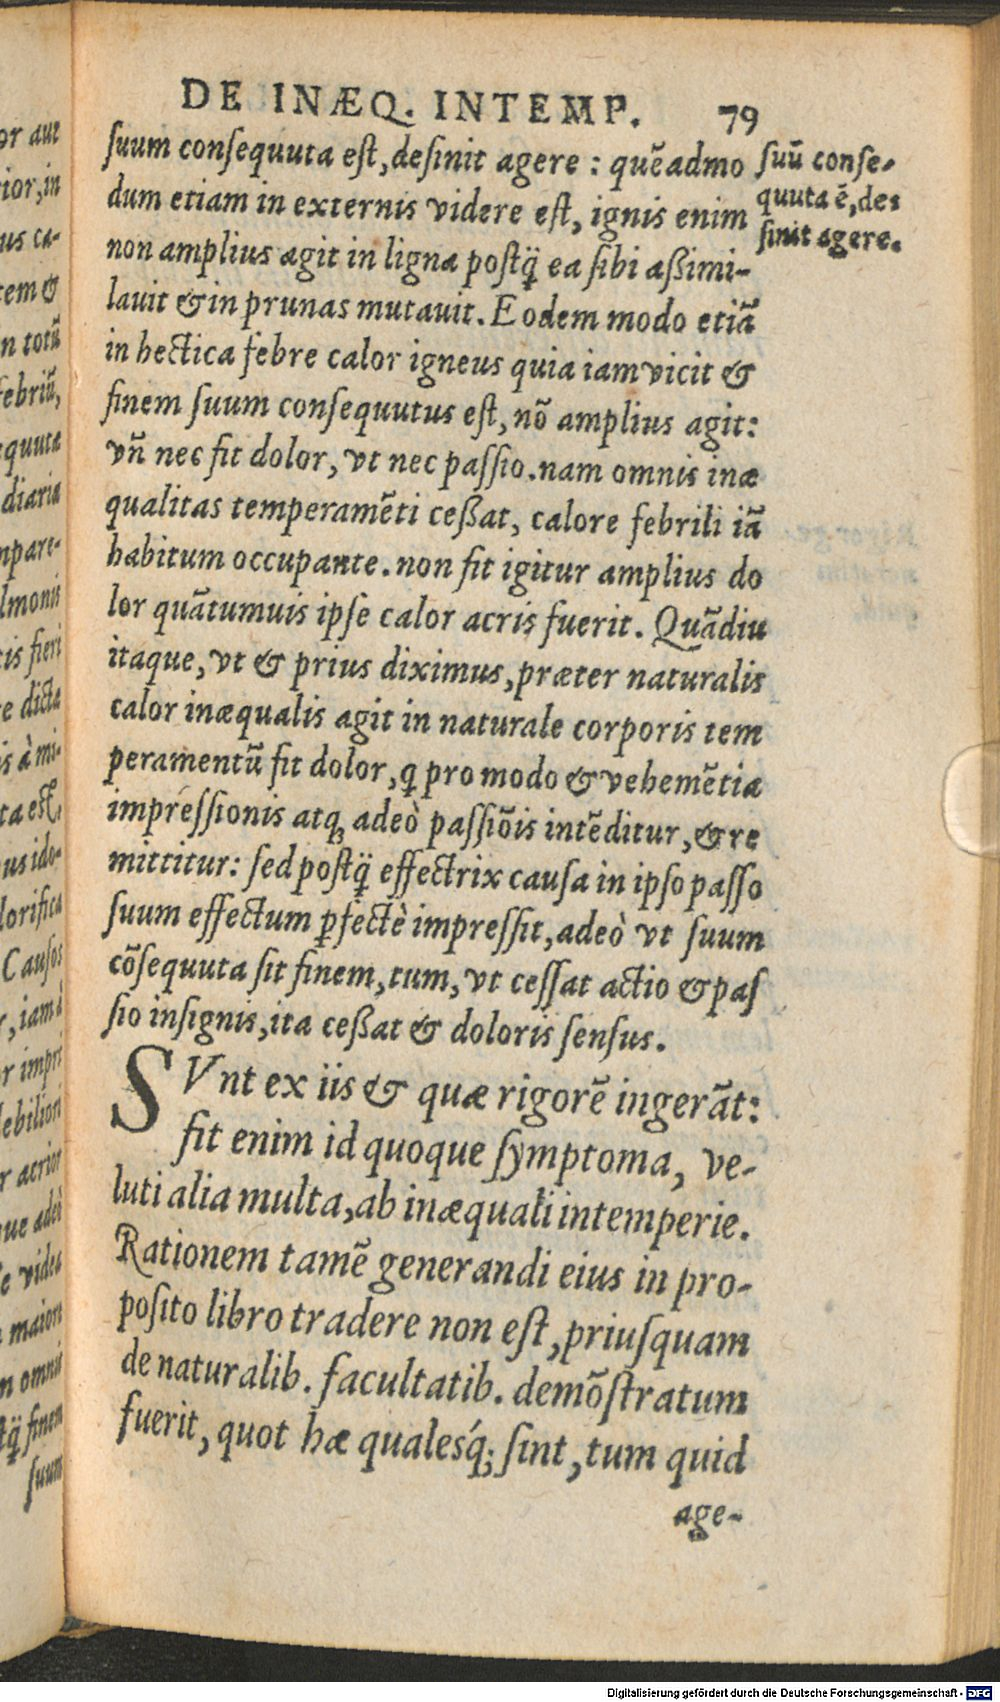 DE INÆQ. INTEMP. 79
ſuum conſequuta eſt, deſinit agere : quẽadmo
dum etiam in externis videre eſt, ignis enim
non amplius agit in ligna poſtq̃ ea ſibi aßimi-
lauit & in prunas mutauit. Eodem modo etiã
in hectica febre calor igneus quia iam vicit &
finem ſuum conſequutus eſt, nõ amplius agit:
vñ nec fit dolor, vt nec paſſio. nam omnis inæ
qualitas temperamẽti ceßat, calore febrili iã
habitum occupante. non fit igitur amplius do
lor quãtumuis ipſe calor acris fuerit. Quãdiu
itaque, vt & prius diximus, præter naturalis
calor inæqualis agit in naturale corporis tem
peramentũ fit dolor, q̃ pro modo & vehemẽtia
impreſſionis atq; adeò paſſiõis intẽditur, & re
mittitur: ſed poſtq̃ effectrix cauſa in ipſo paſſo
ſuum effectum ꝑfectè impreſſit, adeò vt ſuum
cõſequuta ſit finem, tum, vt ceſſat actio & paſ
ſio inſignis, ita ceßat & doloris ſenſus.
SVnt ex iis & quæ rigorẽ ingerãt:
fit enim id quoque ſymptoma, ve-
luti alia multa, ab inæquali intemperie.
Rationem tamẽ generandi eius in pro-
poſito libro tradere non eſt, priuſquam
de naturalib. facultatib. demõſtratum
fuerit, quot hæ qualesq́; ſint, tum quid
age-
ſuũ conſe-
quuta ẽ, de-
ſinit agere.
or aut
ior, in
us ca-
tem &
n totũ
febriũ,
equuta
diaria
mpare-
lmonis
tis fieri
e dicta
is à mi-
ta est,
us ido-
lorifica
Cauſos
r, iam d
r impre
debiliori
r acrior
ue adeò
ſe videa
maiore
m omnis
ſtq̃ finem
ſuum
Digitalisierung gefördert durch die Deutsche Forschungsgemeinschaft - DFG